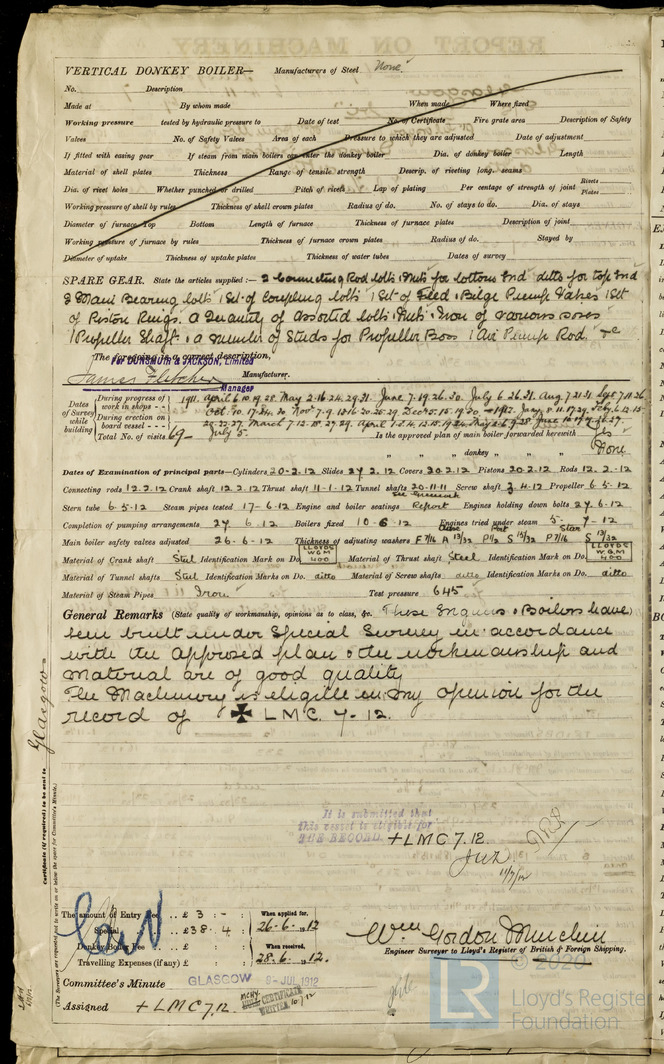 VERTICAL DONKEY BOILER— Manufacturers of Steel None.
No. Description
Made at By whom made When made Where fixed
Working pressure tested by hydraulic pressure to Date of test No. of Certificate Fire grate area Description of Safety
Valves No. of Safety Valves Area of each Pressure to which they are adjusted Date of adjustment
If fitted with easing gear If steam from main boilers can enter the donkey boiler Dia. of donkey boiler Length
Material of shell plates Thickness Range of tensile strength Descrip. of riveting long. seams
Dia. of rivet holes Whether punched or drilled Pitch of rivets Lap of plating Per centage of strength of joint Rivets Plates
Working pressure of shell by rules Thickness of shell crown plates Radius of do. No. of stays to do. Dia. of stays
Diameter of furnace Top Bottom Length of furnace Thickness of furnace plates Description of joint
Working pressure of furnace by rules Thickness of furnace crown plates Radius of do. Stayed by
Diameter of uptake Thickness of uptake plates Thickness of water tubes Dates of survey
SPARE GEAR. State the articles supplied:— 2 Connecting Rod bolts & Nuts for bottom End ditto for top End
2 Main Bearing bolts 1 Set of Coupling bolts 1 Set of Feed & Bilge Pump Valves 1 Set
of Piston Rings. A Quantity of assorted bolts & Nuts & Iron of various sizes
1 Propeller Shaft & a number of Studs for Propeller Boss 1 Air Pump Rod &c
The foregoing is a correct description,
For DUNSMUIR & JACKSON, Limited
James Fletcher Manufacturer.
Manager
Dates of Survey while building
During progress of work in shops - - 1911. April 6. 10. 19. 28. May 2. 16. 24. 29. 31. June 7. 19. 26. 30. July 6. 26. 31. Aug 7. 21. 31.
During erection on board vessel - - -
Total No. of visits 69 July 5. Is the approved plan of main boiler forwarded herewith Yes
" " " donkey " " " None
Dates of Examination of principal parts—Cylinders 20-2-12 Slides 27.2.12 Covers 20.2.12 Pistons 20.2.12 Rods 12.2.12
Connecting rods 12.2.12 Crank shaft 12.2.12 Thrust shaft 11-1-12 Tunnel shafts 20-11-11 Screw shaft 2.4.12 Propeller 6.5.12
Stern tube 6-5-12 Steam pipes tested 17-6-12 Engine and boiler seatings See Greenock Report Engines holding down bolts 27.6.12
Completion of pumping arrangements 27 6.12 Boilers fixed 10-6-12 Engines tried under steam 5-7-12
Main boiler safety valves adjusted 26-6-12 Thickness of adjusting washers
Material of Crank shaft Steel Identification Mark on Do. LLOYDS W.G.M 400 Material of Thrust shaft Steel Identification Mark on Do. LLOYDS W.G.M 400
Material of Tunnel shafts Steel Identification Marks on Do. ditto Material of Screw shafts ditto Identification Marks on Do. ditto
Material of Steam Pipes Iron Test pressure 645
General Remarks (State quality of workmanship, opinions as to class, &c. These Engines & Boilers have
been built under Special Survey in accordance
with the approved plan & the workmanship and
material are of good quality
The Machinery is eligible in my opinion for the
record of ✠ LMC. 7-12.
It is submitted that
this vessel is eligible for
THE RECORD. + LMC 7.12.
11/7/12
Certificate (if required) to be sent to Glasgow
(The Surveyors are requested not to write on or below the space for Committee's Minute.)
The amount of Entry Fee .. £ 3 : - : When applied for,
Special .. £ 38 . 4 : 26-6-1912
Donkey Boiler Fee .. £ : : When received,
Travelling Expenses (if any) £ : : 28.6.1912.
Wm Gordon Murchie
Engineer Surveyor to Lloyd's Register of British & Foreign Shipping.
Committee's Minute GLASGOW 9-JUL 1912
Assigned + LMC 7.12.
MCHY. CERTIFICATE WRITTEN 10/7/12
© 2020
LR Lloyd's Register
Foundation